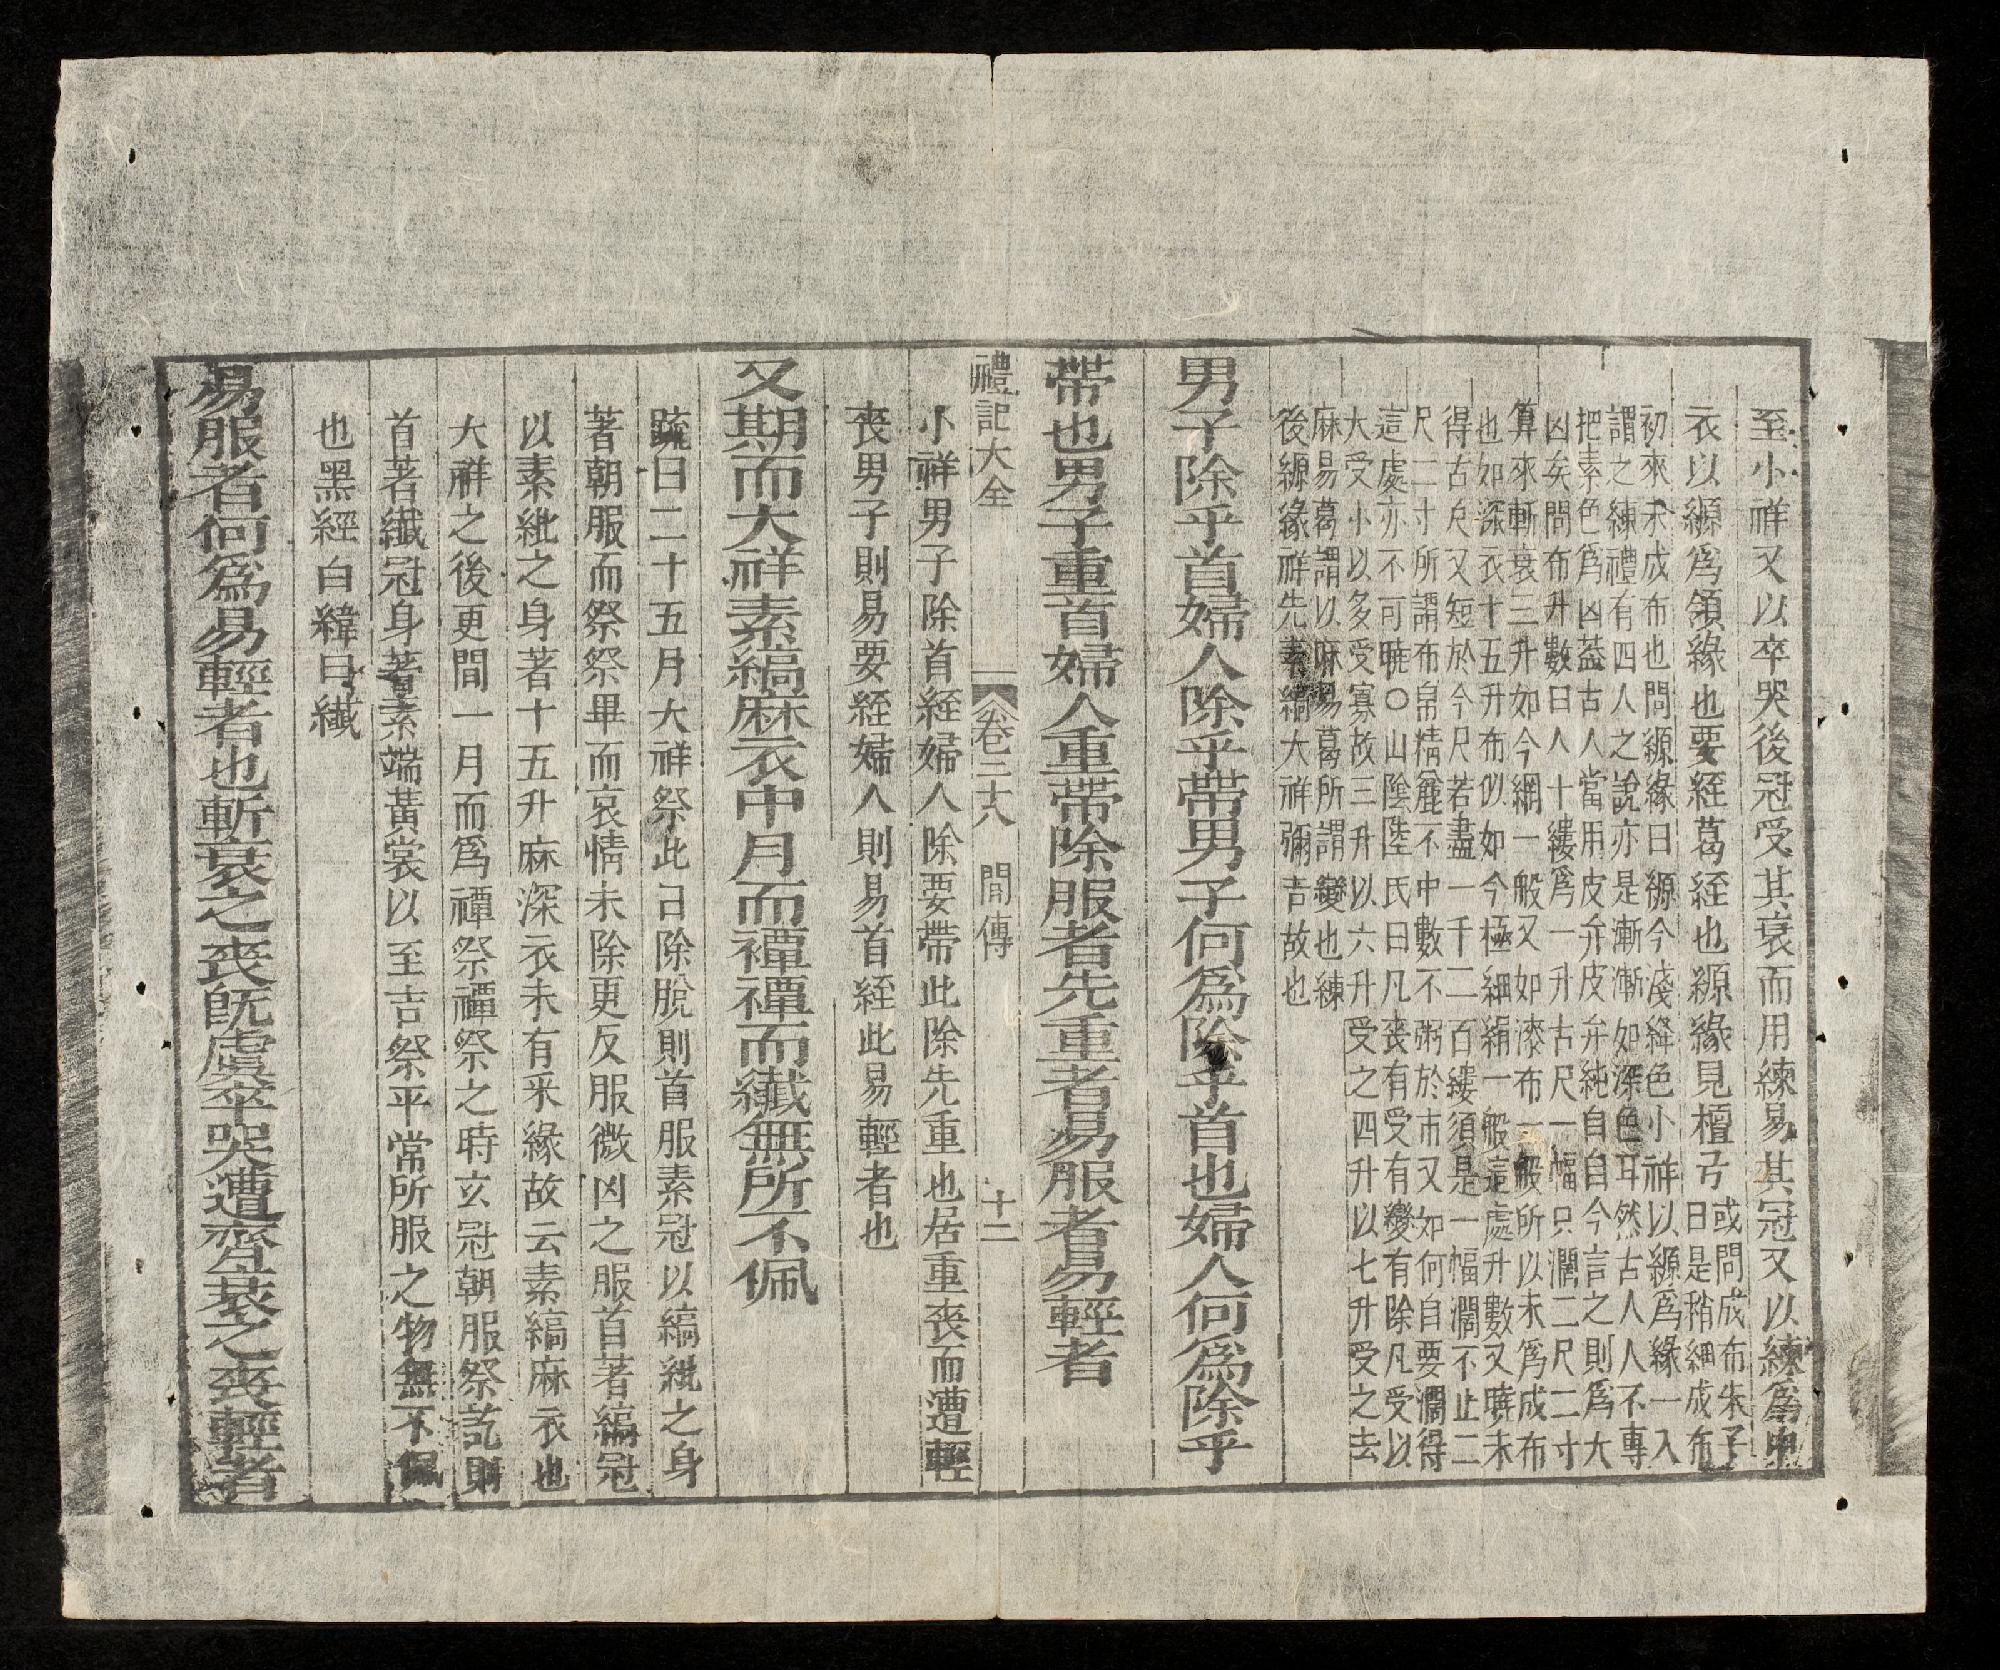 至小祥又以卒哭後冠受其衰而用練易其冠又以練為中
衣以縓為領緣也要絰葛絰也縓緣見檀弓
或問成布朱子
曰是稍細成布
初來未成布也問縓緣曰縓今淺絳色小祥以縓為緣一入
謂之練禮有四人之說亦是漸漸如深色耳然古人人不專
把素色為凶蓋古人當用皮弁皮弁純自自今言之則為大
凶矣問布升數曰人十縷為一升古尺一幅只濶二尺二寸
算來斬衰三升如今網一般又如漆布一般所以未為成布
也如深衣十五升布似如今極細絹一般這處升數又曉未
得古尺又短於今尺若盡一千二百縷須是一幅濶不止二
尺二寸所謂布帛精麄不中數不粥於市又如何自要濶得
這處亦不可曉○山陰陸氏曰凡喪有受有變有除凡受以
大受小以多受寡故三升以六升受之四升以七升受之去
麻易葛謂以麻易葛所謂變也練
後縓緣祥先素縞大祥彌吉故也
男子除乎首婦人除乎帶男子何為除乎首也婦人何為除乎
帶也男子重首婦人重帶除服者先重者易服者易輕者
禮記大全 卷三十八 閒傳 十二
小祥男子除首絰婦人除要帶此除先重也居重喪而遭輕
喪男子則易要絰婦人則易首絰此易輕者也
又期而大祥素縞麻衣中月而禫禫而纖無所不佩
疏曰二十五月大祥祭此日除脫則首服素冠以縞紕之身
著朝服而祭祭畢而哀情未除更反服微凶之服首著縞冠
以素紕之身著十五升麻深衣未有采緣故云素縞麻衣也
大祥之後更間一月而為禫祭禫祭之時玄冠朝服祭訖則
首著纖冠身著素端黃裳以至吉祭平常所服之物無不佩
也黑經白緯曰纖
易服者何為易輕者也斬衰之喪旣虞卒哭遭齊衰之喪輕者